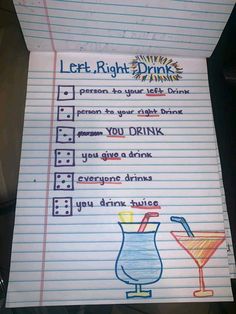 Left, Right Drink
person to your left Drink
person to your right Drink
YOU DRINK
you give a drink
everyone drinks
you drink twice